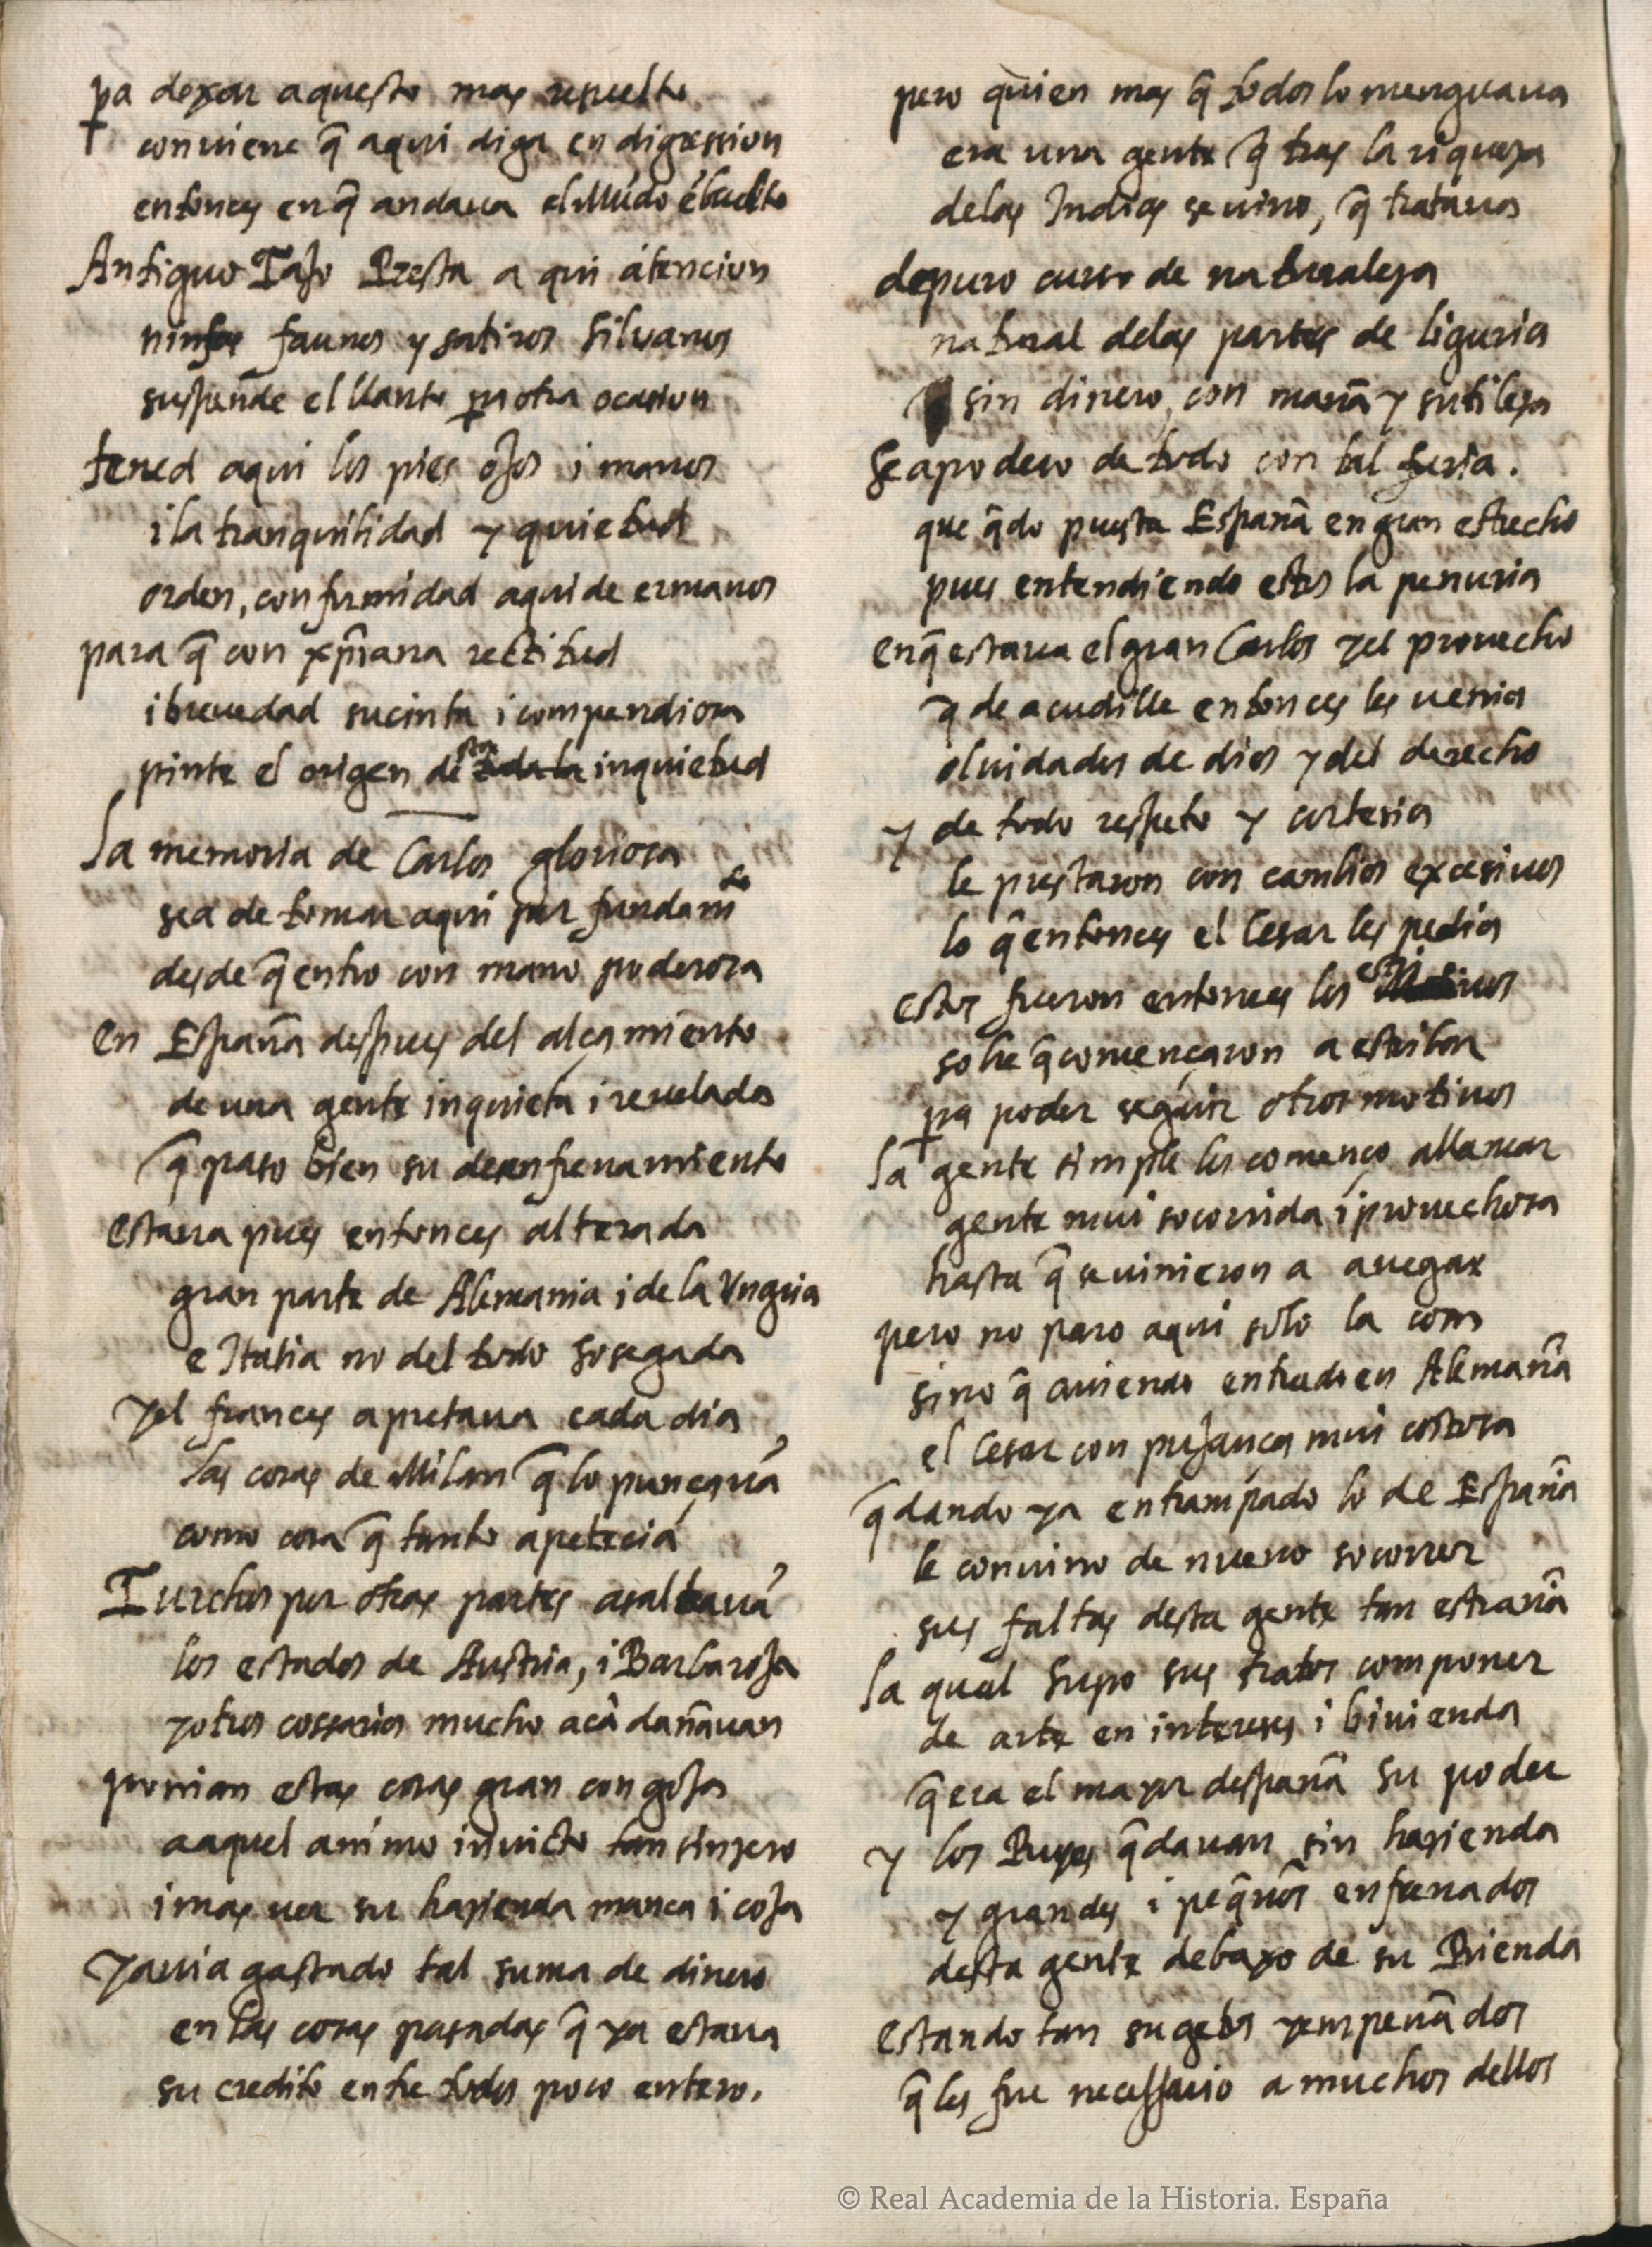 pa dexar aquesto mas resuelto
conuiene q̃ aqui diga en digression
entonces en q̃ andaua el Mũdo ẽbuelto
Antiguo Tajo Presta a qui atencion
ninfas faunos y satiros siluanos
suspende el llanto pa otra ocasion
tened aqui los pies ojos i manos
i la tranquilidad y quietud
orden, conformidad aqui de ermanos
para q̃ con xp̃iana rectitud
i breuedad sucinta i compendiosa
pinte el origen de toda la esta inquietud
La memoria de Carlos gloriosa
sea de tomar aqui por fundamto
desde q̃ entro con mano poderosa
en España despues del alçamiento
de una gente inquieta i reuelada
q̃ paso bien su desenfrenamiento
estaua pues entonces alterada
gran parte de Alemania i de la Vngria
e Italia no del todo sosegada
y el frances apretaua cada dia
las cosas de Milan q̃ lo
como cosa q̃ tanto apetecia
Turchos por otras partes asaltauã
los estados de Austria, i Barbaroja
y otros cossarios mucho acà dañauan
ponian estas cosas gran congoja
a aquel animo inuicto tan sinzero
i mas uer su hazienda manca i coja
y auia gastado tal suma de dinero
en las cosas pasadas q̃ ya estaua
su credito entre todos poco entero.
pero quien mas q̃ todos lo menguaua
era una gente q̃ tras la riqueza
de las Indias se uino, q̃ trataua
de puro curso de naturaleza
natural de las partes de liguria
sin dinero, con maña y sutileza
se apodero de todo con tal furia.
que q̃do puesta España en gran estrecho
pues entendiendo estos la penuria
en q̃ estaua el gran Carlos y el prouecho
q̃ de acudille entonces les uenia
oluidados de dios y del derecho
y de todo respeto y cortesia
le prestaron con cambios excesiuos
lo q̃ entonces el Cesar les pedia
estos fueron entonces los estriuos
sobre q̃ començaron a estribar
pa poder seguir otros motiuos
la gente simple los començo allamar
gente mui socorrida i prouechosa
hasta q̃ se uinieron a auegar
pero no paro aqui solo la cosa
sino q̃ auiendo entrado en Alemaña
el Cesar con pujança mui costosa
q̃dando ya entrampado lo de España
le conuino de nueuo socorrer
sus faltas desta gente tan estraña
la qual supo sus tratos componer
de arte en intereses i biuienda
q̃ era el mayor despaña su poder
y los Reyes q̃dauan sin hazienda
y grandes i peq̃ños enfrenados
desta gente debaxo de su Rienda
estando tan sugetos y empeñados
q̃ les fue necessario a muchos dellos
© Real Academia de la Historia. España